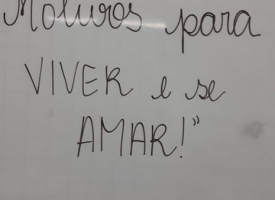 Motivos para
VIVER e se
AMAR!"